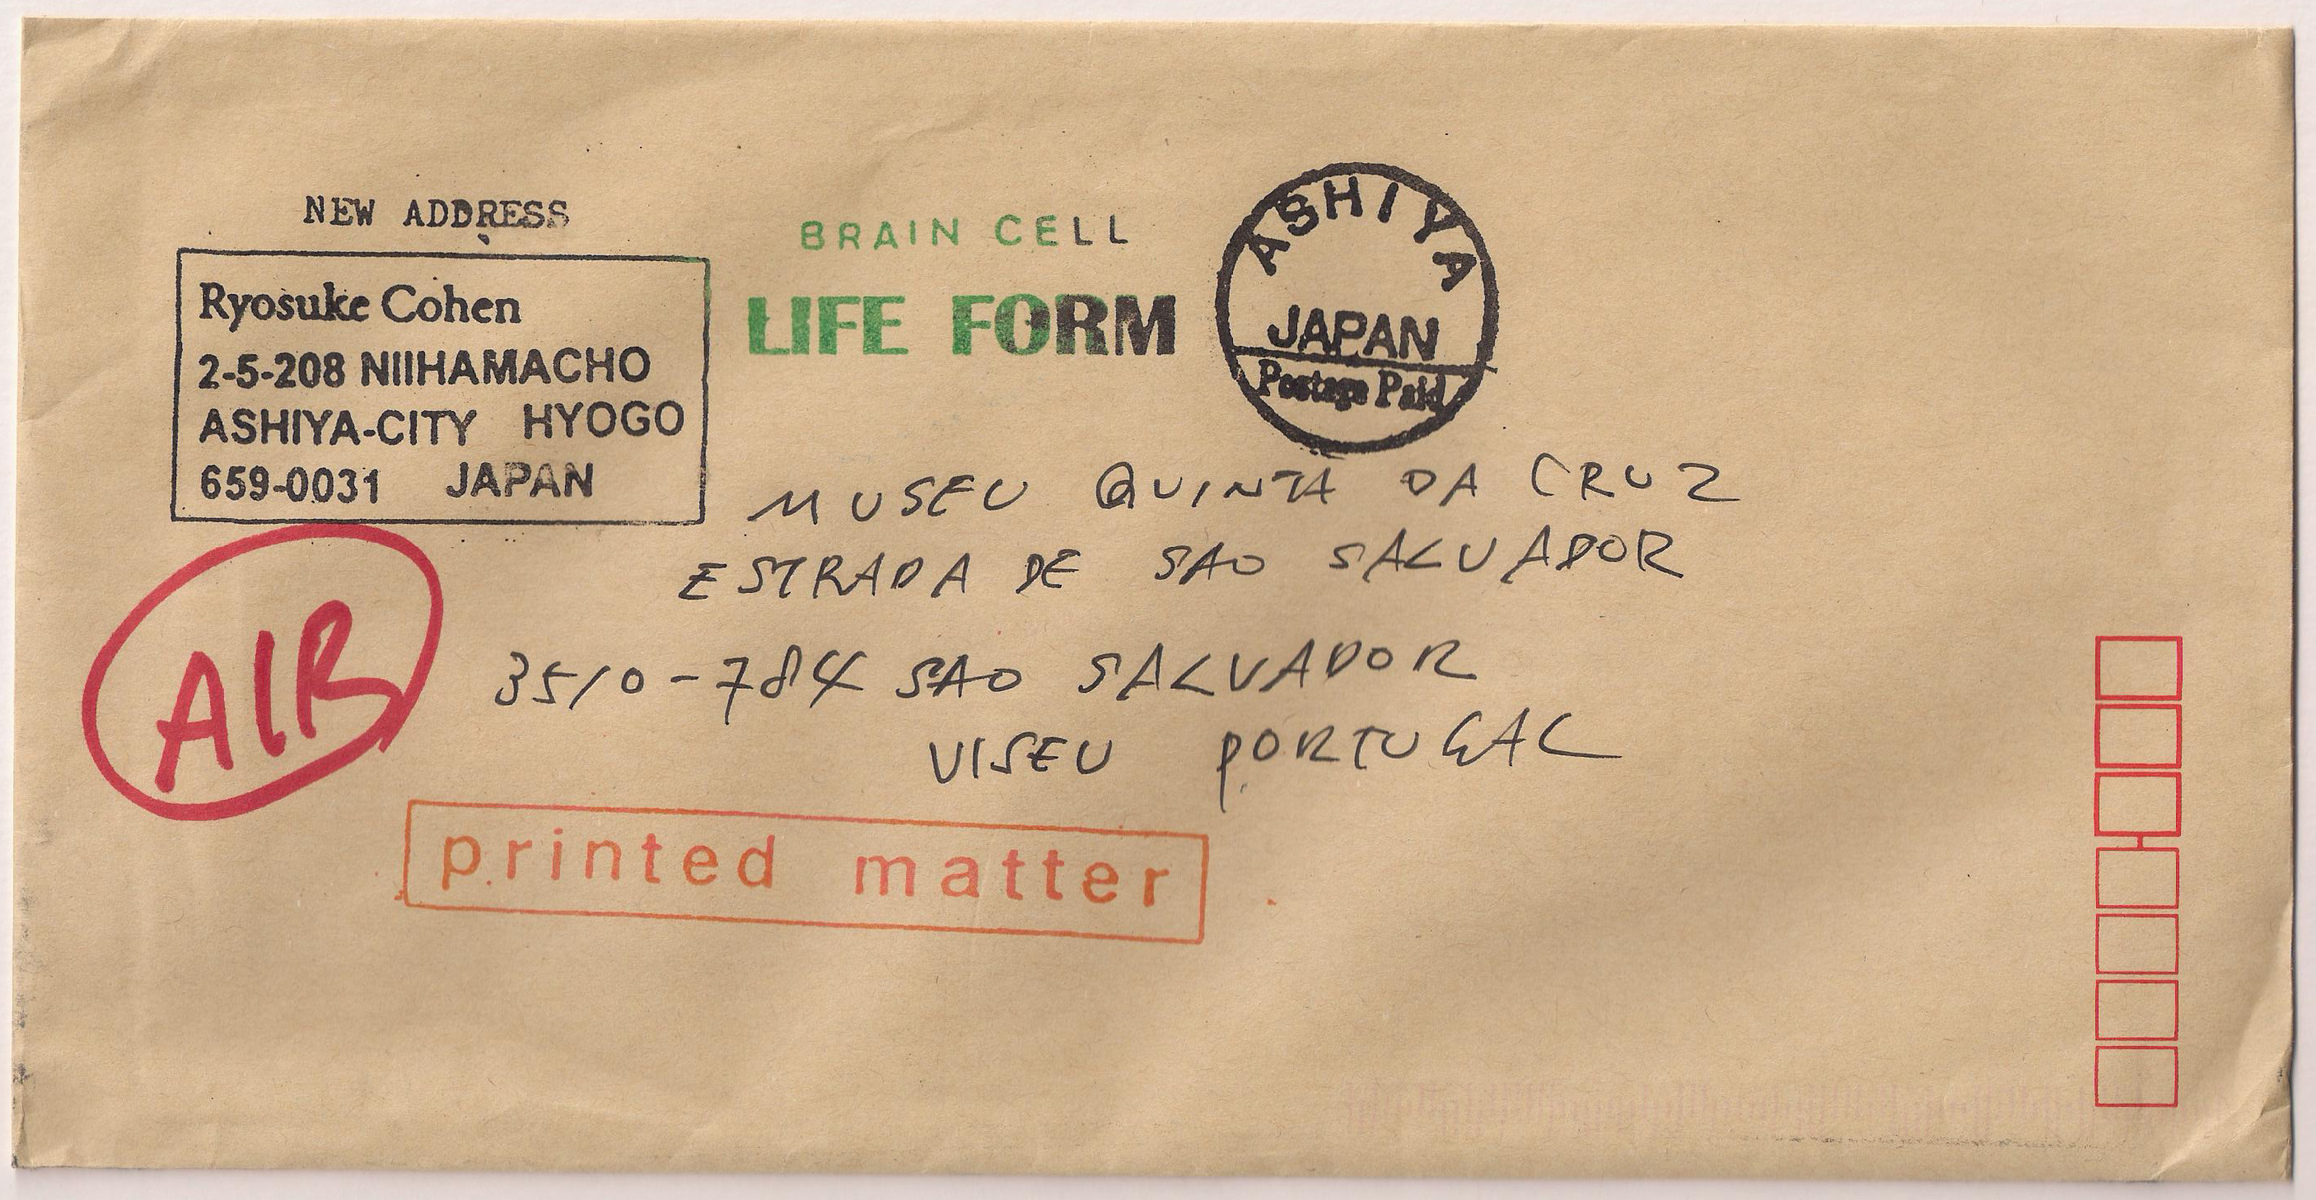 NEW ADDRESS
Ryosuke Cohen
2-5-208 NIIHAMACHO
ASHIYA-CITY HYOGO
659-0031 JAPAN
BRAIN CELL
LIFE FORM
ASHIYA
JAPAN
Postage Paid
MUSEU QUINTA DA CRUZ
ESTRADA DE SAO SALVADOR
3510-784 SAO SALVADOR
VISEU PORTUGAL
AIR
printed matter